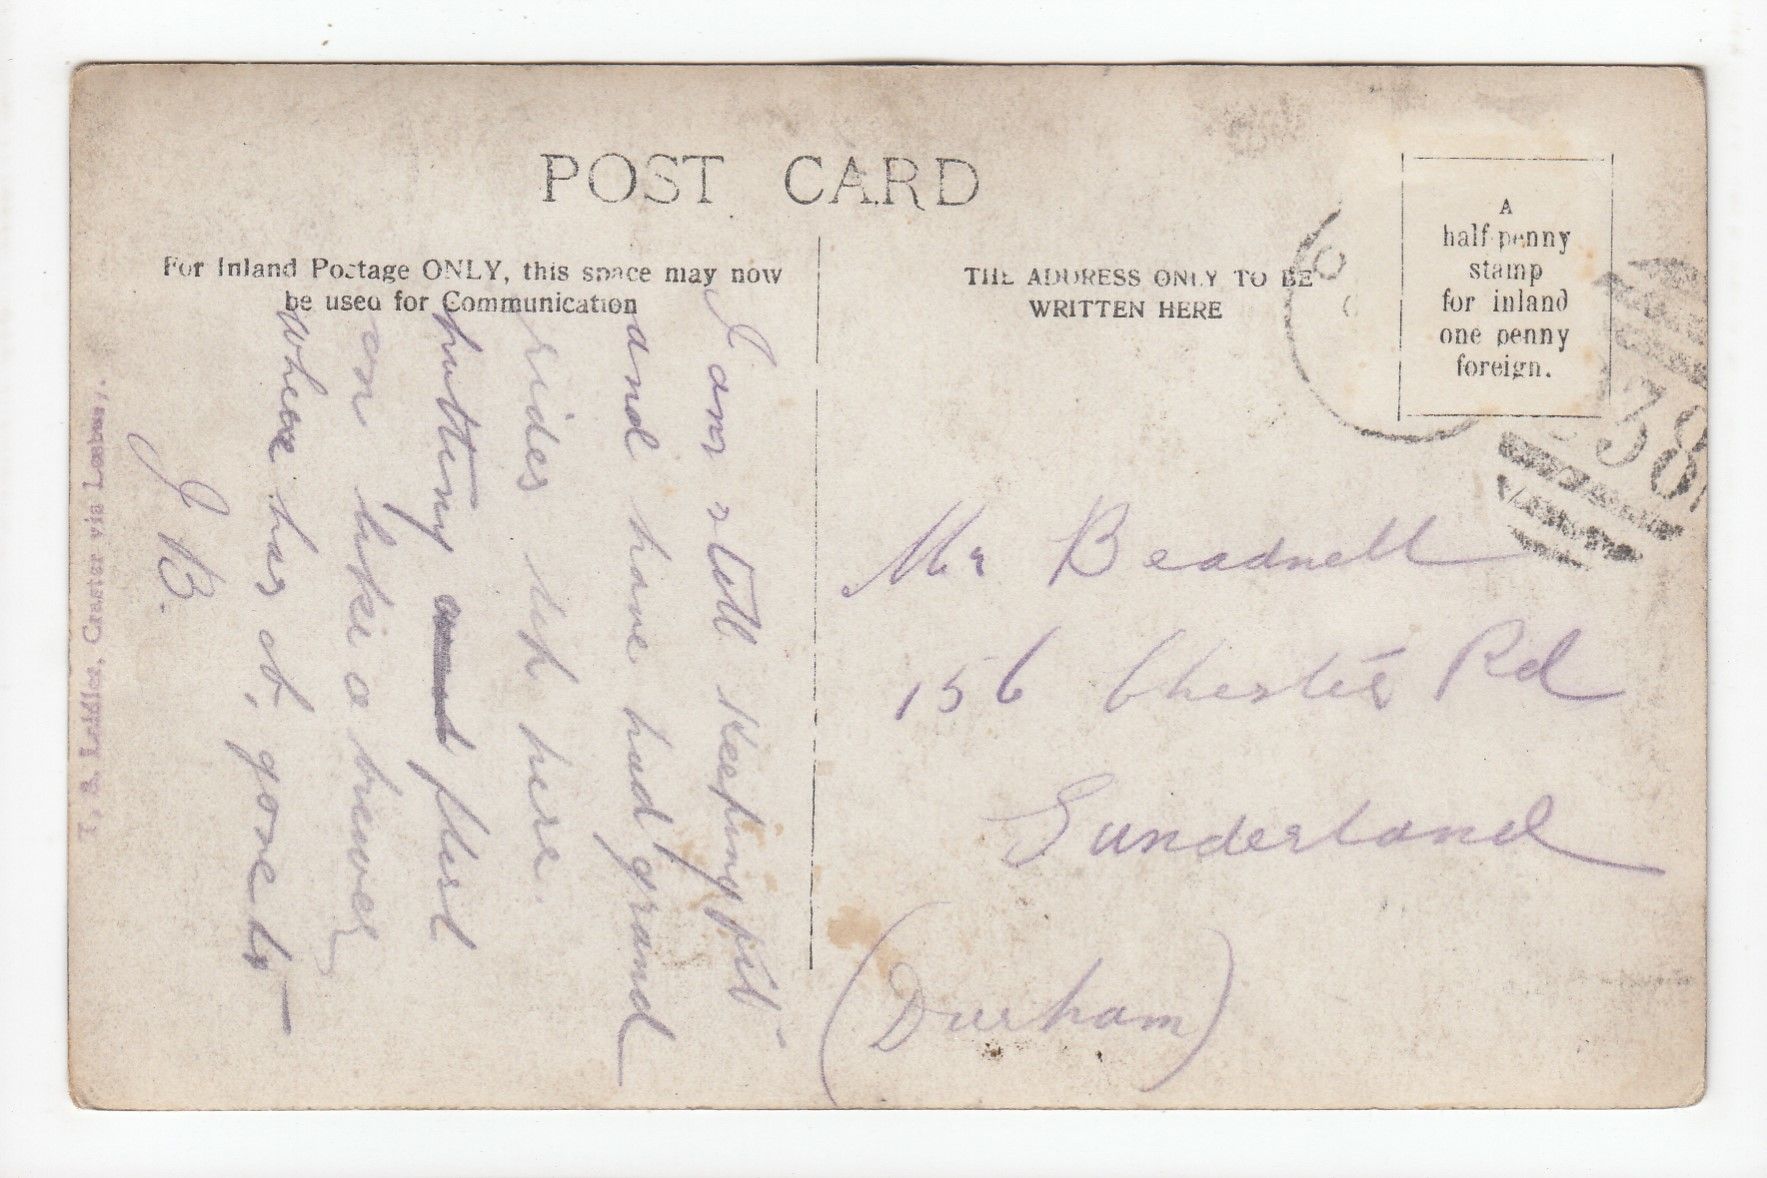 POST CARD
For Inland Postage ONLY, this space may now
be used for Communication
THE ADDRESS ONLY TO BE
WRITTEN HERE
A
half-penny
stamp
for inland
one penny
foreign.
38
I am still keeping fit
and have had grand
rides up here.
putting flesh
on like a
where has it, gone to
J B.
Mr Beadnell
156 Chester Rd
Sunderland
(Durham)
Craster via Lesbury.